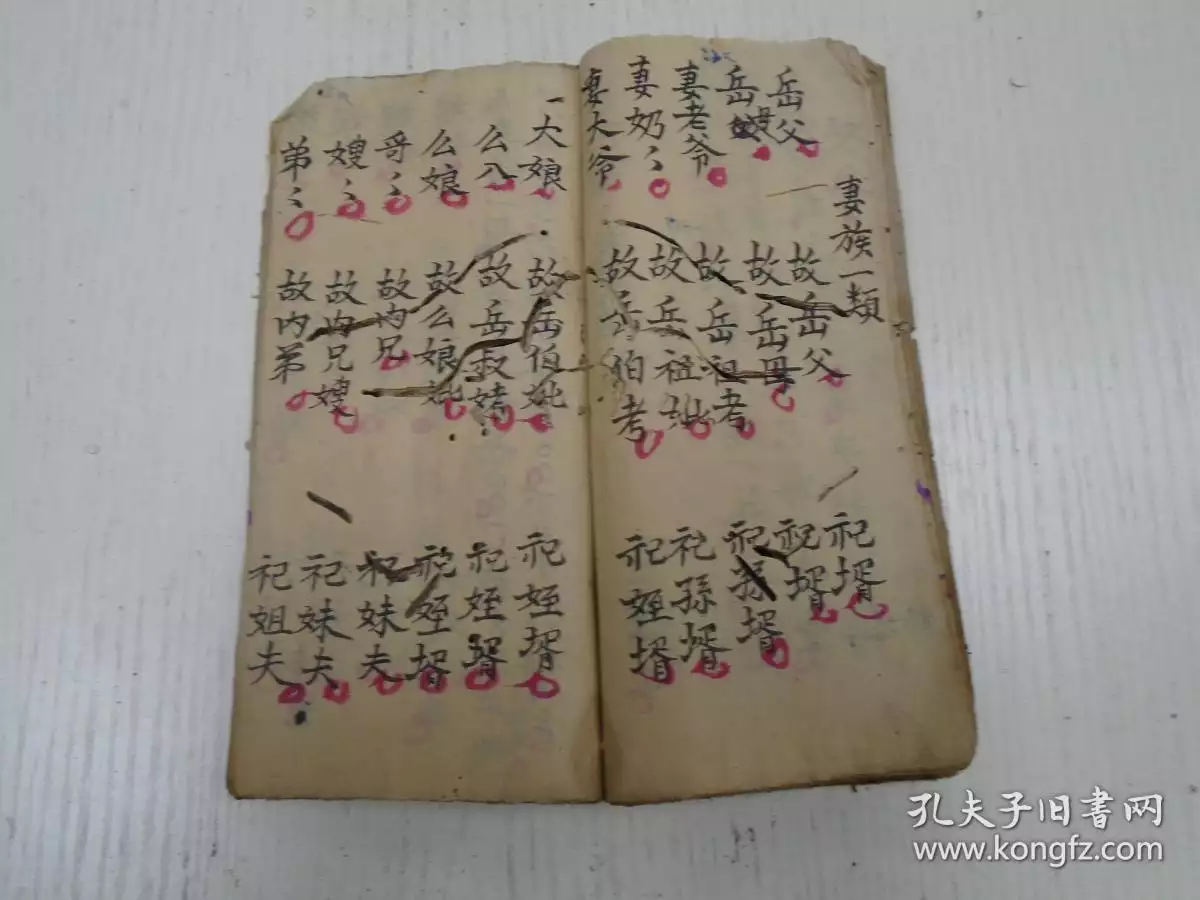 妻族一類
岳父 故岳父 祀婿
岳 故岳母 祀婿
妻老爷 故岳祖考 祀孫婿
妻奶〻 故岳祖妣 祀孫婿
妻大爷 故岳伯考 祀姪婿
一大娘 故岳伯妣 祀姪婿
么八 故岳叔 祀姪婿
么娘 故么娘妣 祀姪婿
哥〻 故内兄 祀妹夫
嫂〻 故内兄嫂 祀妹夫
弟〻 故内弟 祀姐夫
孔夫子旧书网
www.kongfz.com